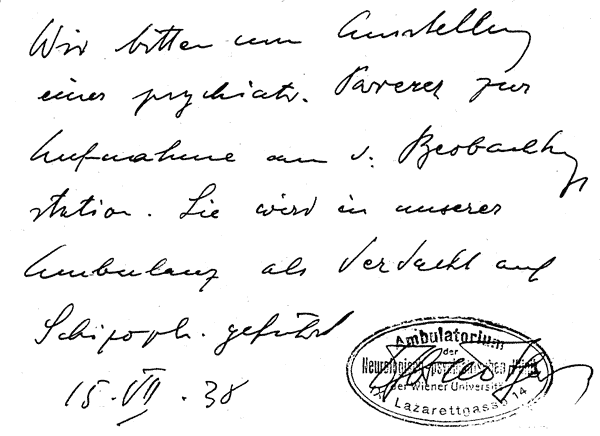 Wir bitten um Ausstellung
eines psychiatr. Parere's zur
Aufnahme an d. Beobachtungs
station. Sie wird in unserer
Ambulanz als Verdacht auf
Schizoph. geführt
15. VII. 38
Ambulatorium
der
Neurologisch-psychiatrischen Klinik
der Wiener Universität
Lazarettgasse 14